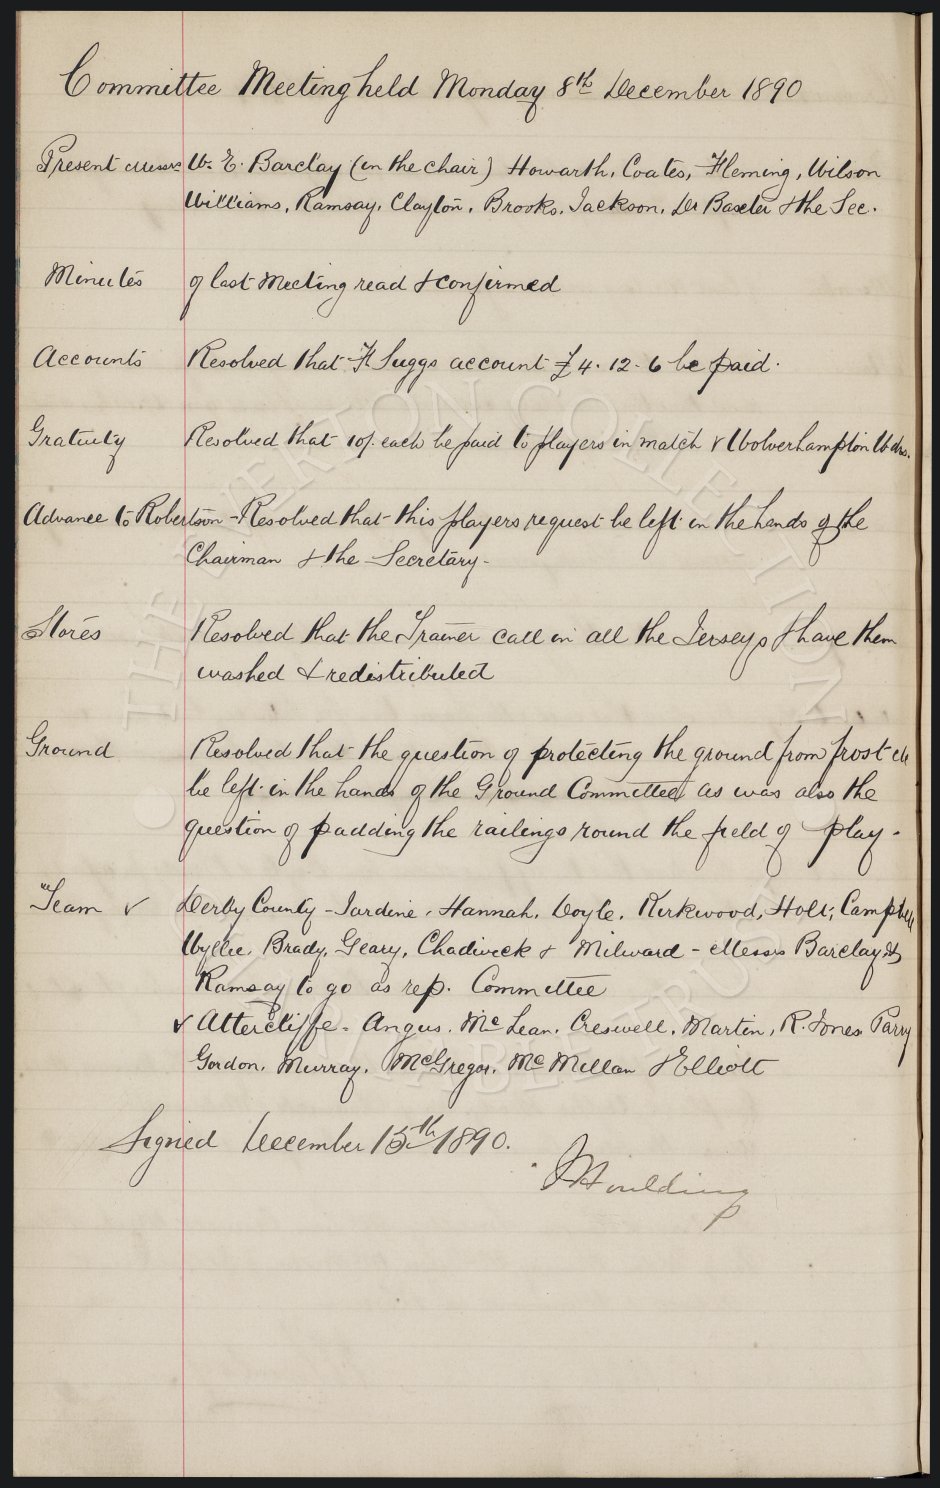 Committee Meeting held Monday 8th December 1890
Present Messrs W. E. Barclay (in the chair) Howarth, Coates, Fleming, Wilson
Williams, Ramsay, Clayton, Brooks, Jackson, Dr Baxter & the Sec.
Minutes of last Meeting read & confirmed
Accounts Resolved that F Suggs account £4. 12. 6 be paid.
Gratuity Resolved that 10/. each be paid to players in match v Wolverhampton Wdrs.
Advance to Robertson - Resolved that this players request be left in the hands of the
Chairman & the Secretary -
Stores Resolved that the Trainer call in all the Jerseys & have them
washed & redistributed
Ground Resolved that the question of protecting the ground from frost etc
be left in the hands of the Ground Committee as was also the
question of padding the railings round the field of play.
Team v Derby County - Jardine, Hannah, Doyle, Kirkwood, Holt, Campbell
Wyllie, Brady, Geary, Chadwick & Milward - Messrs Barclay &
Ramsay to go as rep. Committee
v Attercliffe - Angus, McLean, Creswell, Martin, R. Jones Parry
Gordon, Murray, McGregor, McMillan & Elliott
Signed December 15th 1890.
J Houlding
THE EVERTON COLLECTION
TRUST